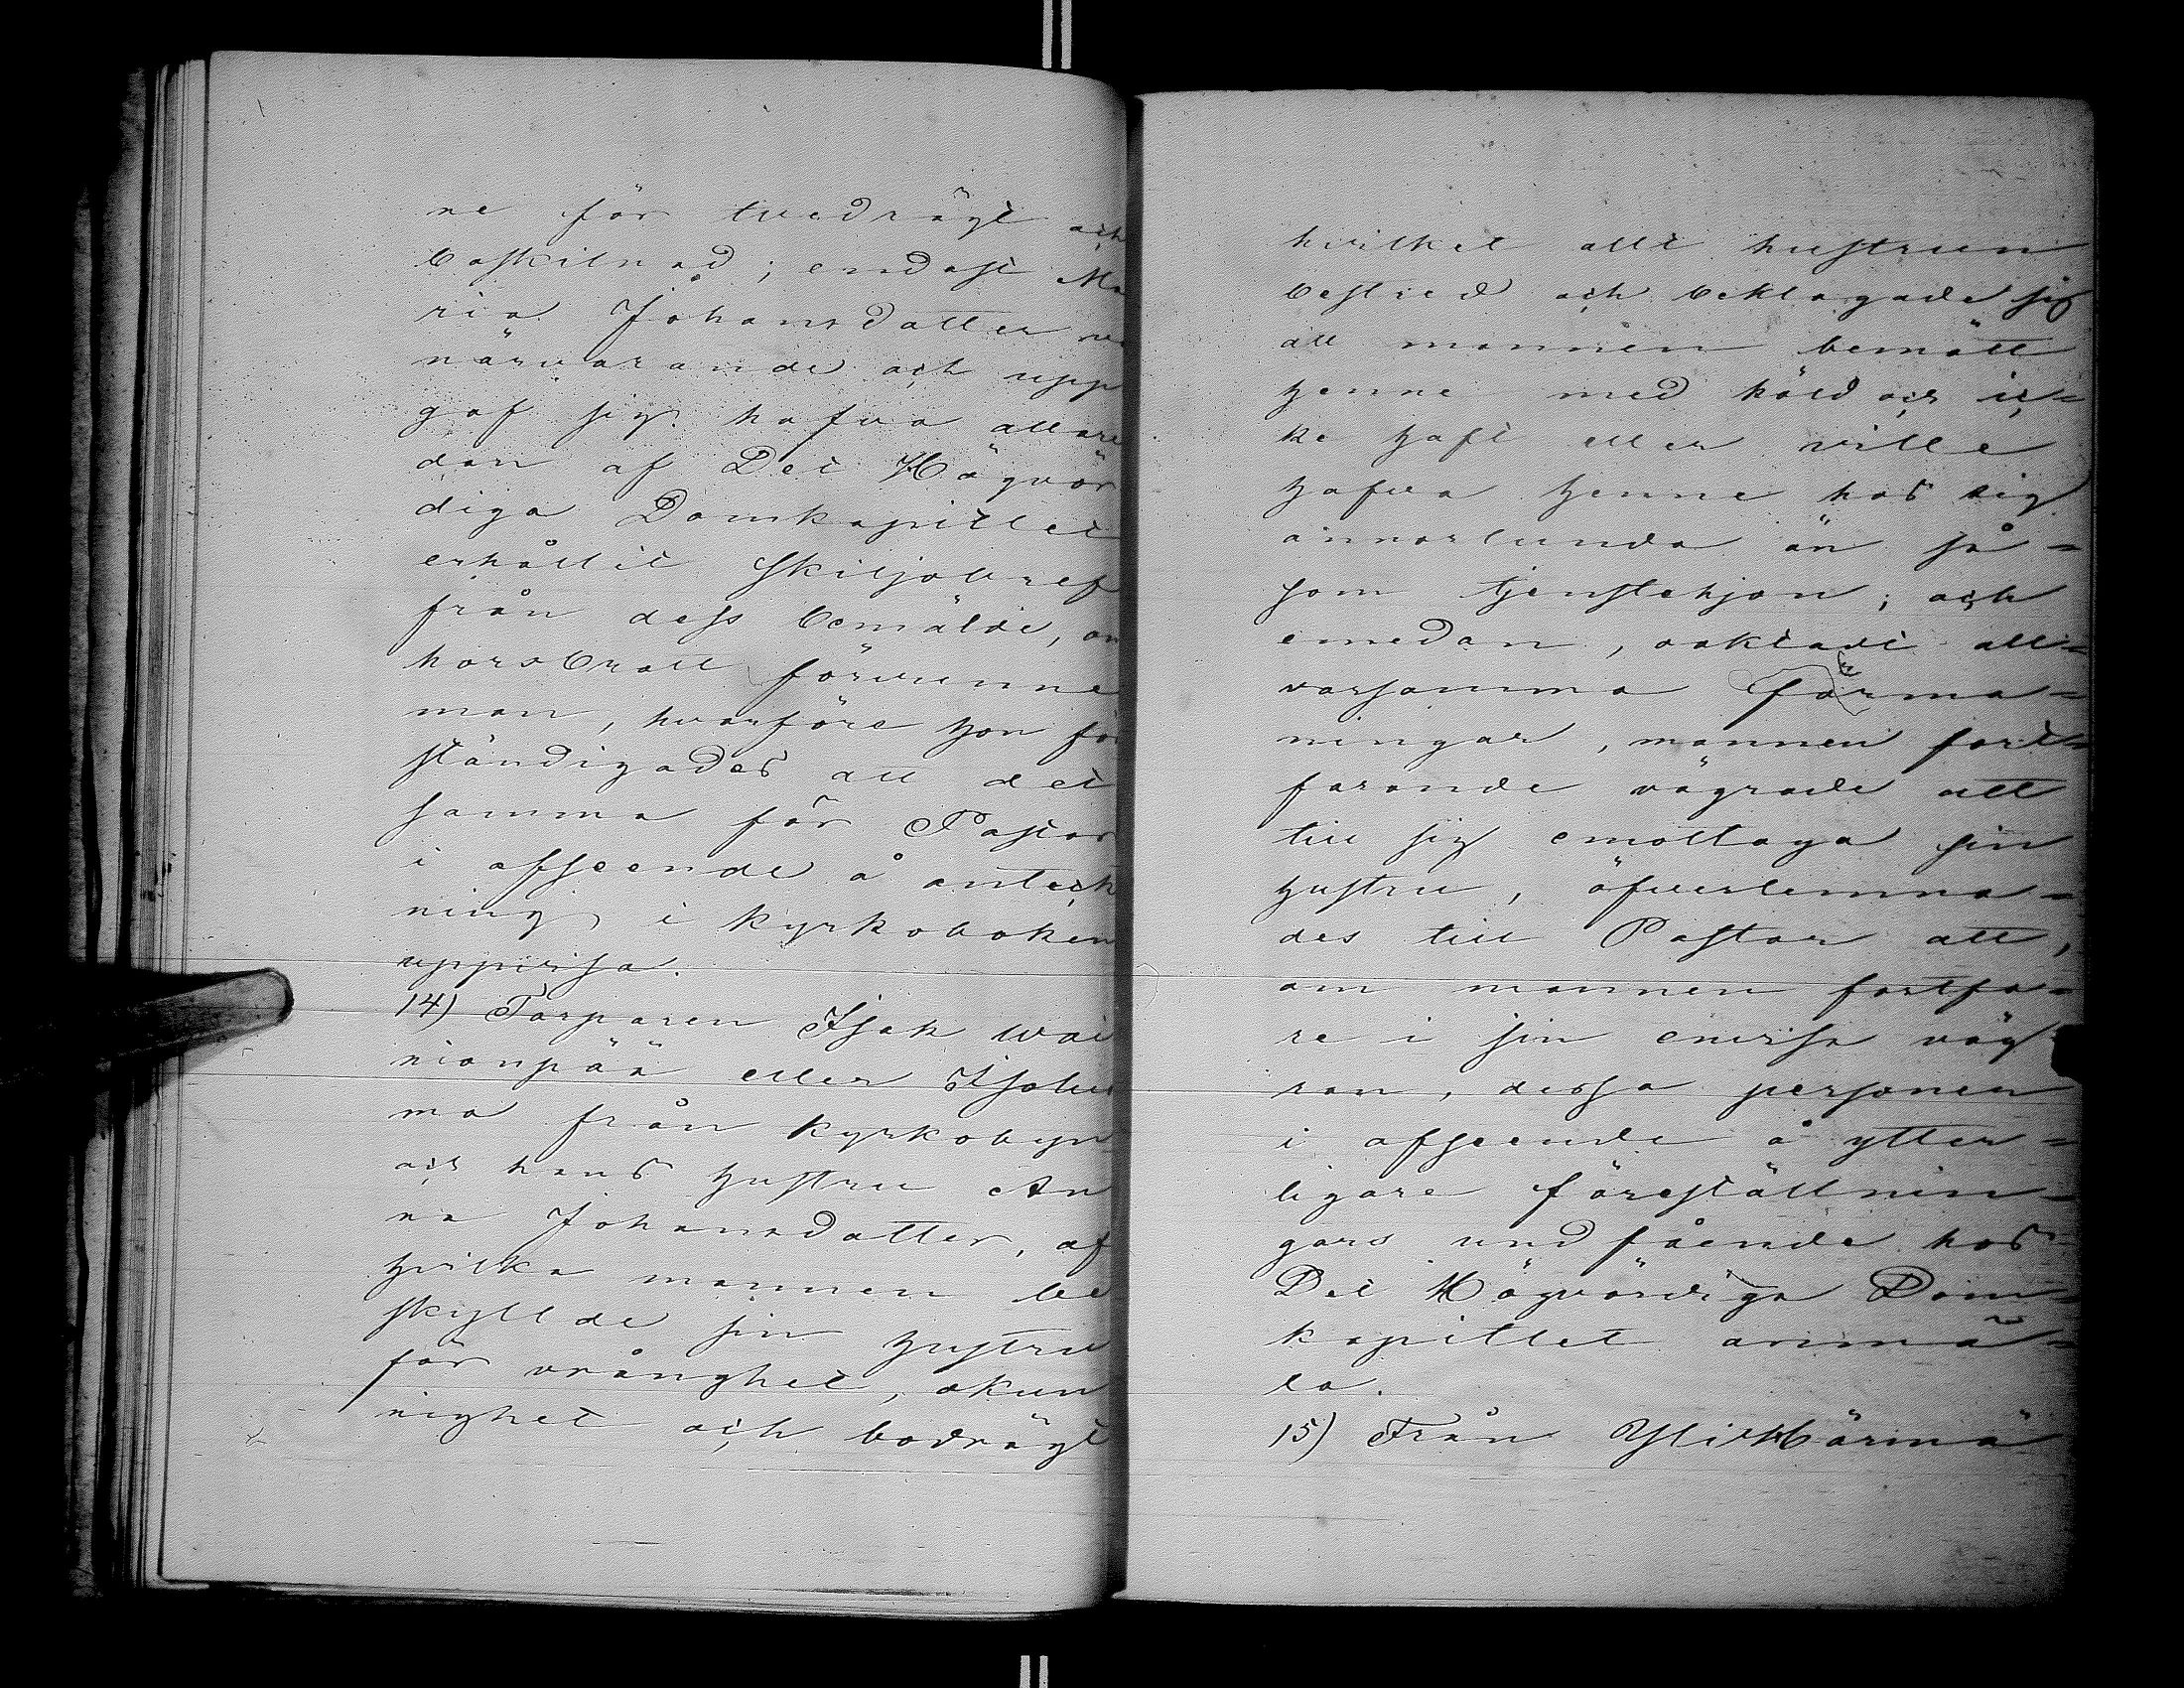 ne för tvedrägt och
boskilnad; endast Ma
ria Johansdotter va
närvarande och upp
gaf sig hafva allare
dan af Det Högvör
diga Domkapitlet
erhållit skiljobref
från dess bemälde, om
horsbrott förvunne
man, hvarföre hon för
ständigades att det
samma för Pastor
i afseende å anteck
ning i kyrkoboken
uppvisa.
14) Torparen Isak Wai
nionpää eller Isolu
ma från kyrkobyn
och hans hustru An
na Johansdotter, af
hvilka mannen be
skyllde sin hustru
för vrånghet, okun
nighet och bodrägt
hvilket allt hustrun
bestred och beklagade sig
att mannen bemött
henne med köld och ic=
ke haft eller ville
hafva henne hos sig
annorlunda än så=
som tjenstehjon; och
emedan, oaktadt all=
varsamma förma=
ningar, mannen fort=
farande vägrade att
till sig emottaga sin
hustru, öfverlemna=
des till Pastor att,
om mannen fortfa=
re i sin envisa väg
ran, dessa personer
i afseende å ytter=
ligare föreställnin=
gars undfående hos
Det Högvördiga Dom=
kapitlet anmä=
la.
15) Från YliHärmä